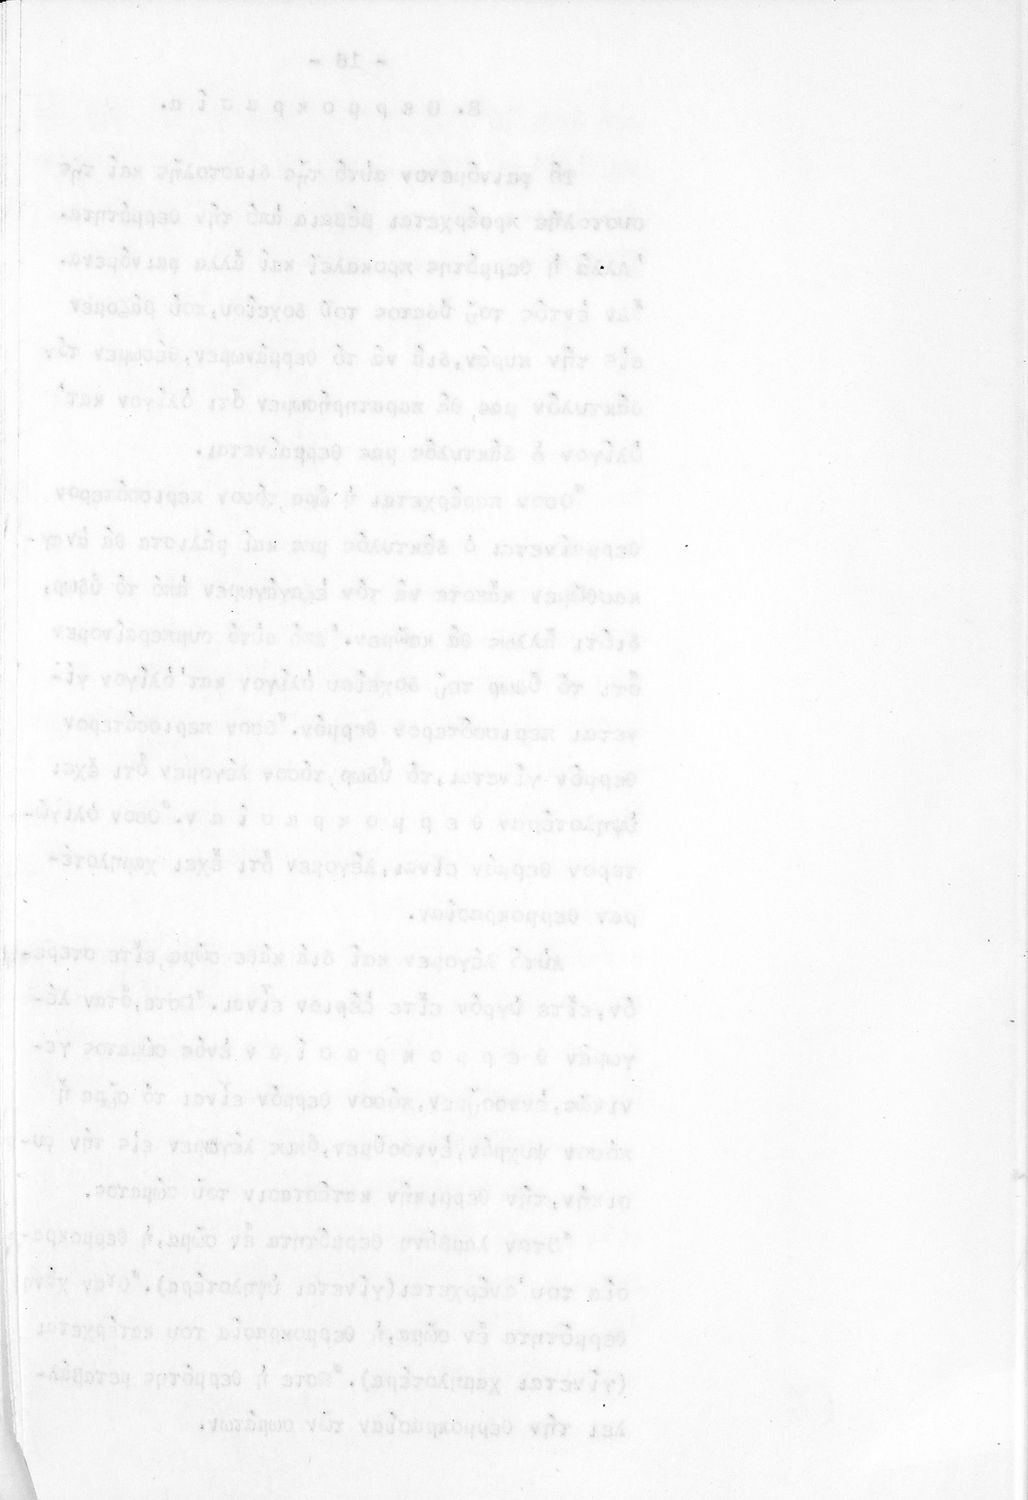 - 16 -
Β. Θ ε ρ μ ο κ ρ α σ ί α.
Τό φαινόμενον αὐτό τῆς διαστολῆς καί τῆς
συστολῆς προέρχεται βέβαια ἀπό τήν θερμότητα.
Ἀλλά ἡ θερμότης προκαλεῖ καί ἄλλα φαινόμενα.
Ἐάν ἐντός τοῦ ὕδατος τοῦ δοχείου,πού βάζομεν
εἰς τήν πυράν,διά νά τό θερμάνωμεν,θέσωμεν τόν
δάκτυλόν μας,θά παρατηρήσωμεν ὅτι ὀλίγον κατ'
ὀλίγον ὁ δάκτυλός μας θερμαίνεται.
Ὅσον παρέρχεται ἡ ὥρα,τόσον περισσότερον
θερμαίνεται ὁ δάκτυλός μας καί μάλιστα θά ἀναγ-
κασθῶμεν κάποτε νά τόν ἐξαγάγωμεν ἀπό τό ὕδωρ,
διότι ἄλλως θά καῶμεν.Ἀπό αὐτό συμπεραίνομεν
ὅτι τό ὕδωρ τοῦ δοχείου ὀλίγον κατ'ὀλίγον γί-
νεται περισσότερον θερμόν.Ὅσον περισσότερον
θερμόν γίνεται,τό ὕδωρ,τόσον λέγομεν ὅτι ἔχει
ὑψηλοτέραν θ ε ρ μ ο κ ρ α σ ί α ν.Ὅσον ὀλιγώ-
τερον θερμόν εἶναι,λέγομεν ὅτι ἔχει χαμηλοτέ-
ραν θερμοκρασίαν.
Αὐτό λέγομεν καί διά κάθε σῶμα,εἴτε στερε-
όν,εἴτε ὑγρόν εἴτε ἀέριον εἶναι.Ὥστε,ὅταν λέ-
γωμεν θ ε ρ μ ο κ ρ α σ ί α ν ἑνός σώματος γε-
νικῶς,ἐννοοῦμεν,πόσον θερμόν εἶναι τό σῶμα ἤ
πόσον ψυχρόν,ἐννοοῦμεν,ὅπως λέγομεν εἰς τήν φυ-
σικήν,τήν θερμικήν κατάστασιν τοῦ σώματος.
Ὅταν λαμβάνῃ θερμότητα ἕν σῶμα,ἡ θερμοκρα-
σία του ἀνέρχεται(γίνεται ὑψηλοτέρα).Ὅταν χάνῃ
θερμότητα ἕν σῶμα,ἡ θερμοκρασία του κατέρχεται
(γίνεται χαμηλοτέρα).Ὥστε ἡ θερμότης μεταβάλ-
λει τήν θερμοκρασίαν τῶν σωμάτων.